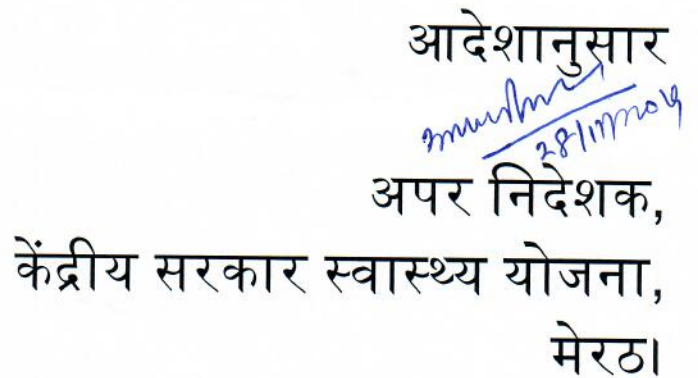 आदेशानुसार
अपर निदेशक,
केंद्रीय सरकार स्वास्थ्य योजना,
मेरठ।